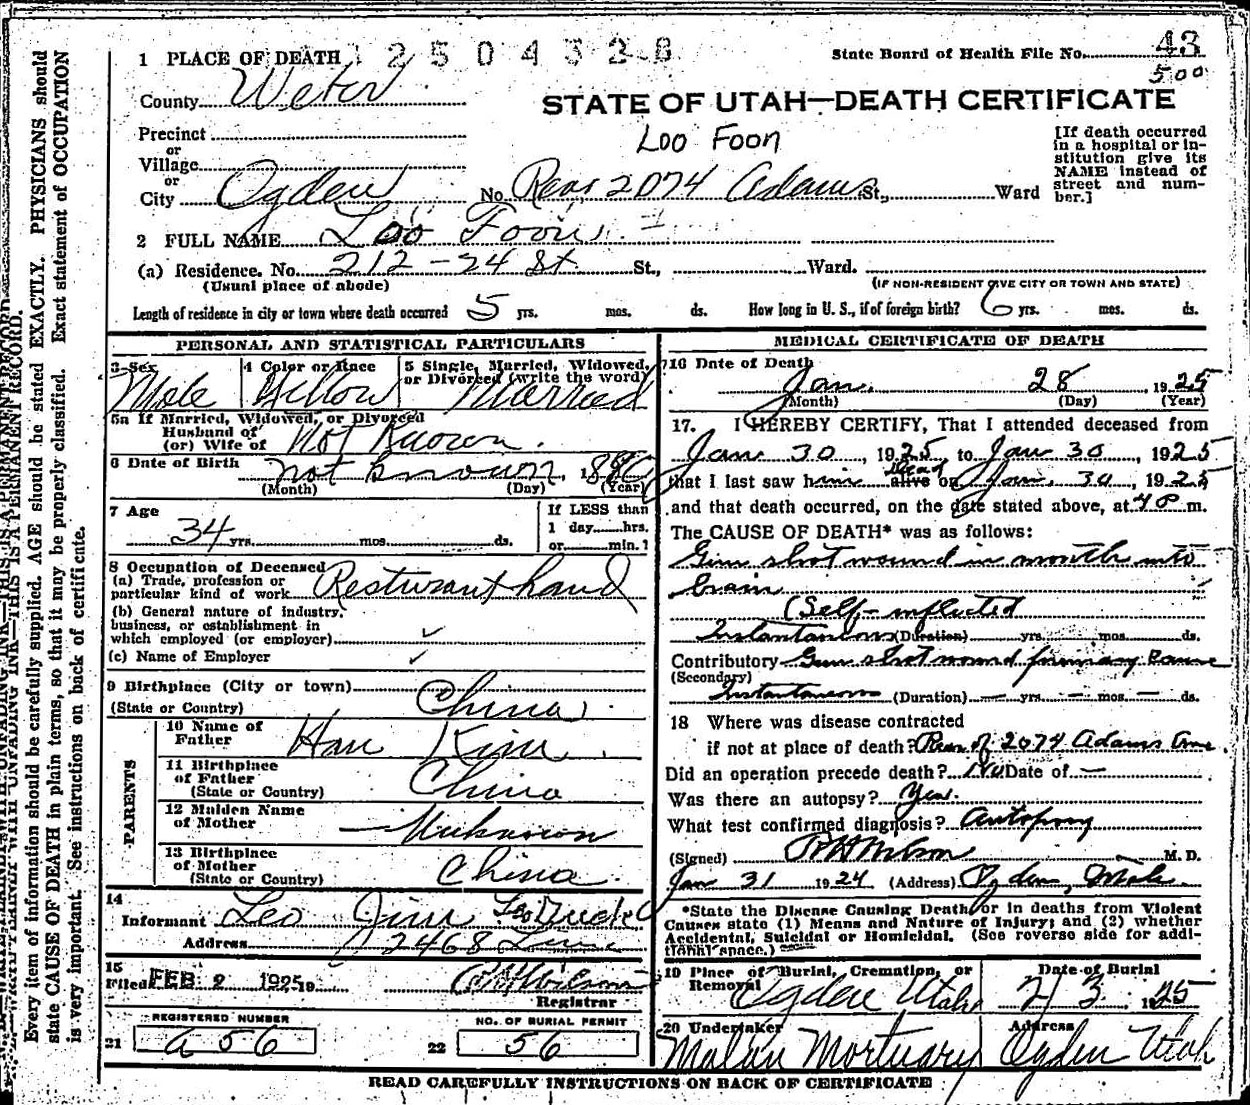 1 PLACE OF DEATH 2504328
State Board of Health File No. 43
500
County Weber
STATE OF UTAH—DEATH CERTIFICATE
Precinct
or
Village
or
City Ogden No. Rear 2074 Adams St., Ward
Loo Foon
[If death occurred
in a hospital or in-
stitution give its
NAME instead of
street and num-
ber.]
2 FULL NAME Loo Foon
(a) Residence. No. 212-24 St St., Ward.
(Usual place of abode)
(IF NON-RESIDENT GIVE CITY OR TOWN AND STATE)
Length of residence in city or town where death occurred 5 yrs. mos. ds. How long in U. S., if of foreign birth? 6 yrs. mos. ds.
PERSONAL AND STATISTICAL PARTICULARS
3 Sex 4 Color or Race 5 Single, Married, Widowed,
or Divorced (write the word)
Male Yellow Married
5a If Married, Widowed, or Divorced
Husband of
(or) Wife of Not Known.
6 Date of Birth not known, 1880
(Month) (Day) (Year)
7 Age
34 yrs. mos. ds.
If LESS than
1 day hrs.
or min.?
8 Occupation of Deceased
(a) Trade, profession or
particular kind of work Resturant hand
(b) General nature of industry,
business, or establishment in
which employed (or employer)
(c) Name of Employer
9 Birthplace (City or town)
(State or Country) China
PARENTS
10 Name of
Father Han Kim
11 Birthplace
of Father
(State or Country) China
12 Maiden Name
of Mother Unknown
13 Birthplace
of Mother
(State or Country) China
14
Informant Leo Jim
Address 2468
15
Filed FEB 2 1925 19 Wilson
Registrar
REGISTERED NUMBER
21 a 56
NO. OF BURIAL PERMIT
22 56
MEDICAL CERTIFICATE OF DEATH
16 Date of Death
Jan. 28 1925
(Month) (Day) (Year)
17. I HEREBY CERTIFY, That I attended deceased from
Jan 30, 1925, to Jan 30, 1925
that I last saw him alive dead on Jan. 30, 1925
and that death occurred, on the date stated above, at m.
The CAUSE OF DEATH* was as follows:
Gun shot wound in mouth into
brain
(Self-inflicted
Instantaneous (Duration) yrs. mos. ds.
Contributory Gun shot wound primary cause
(Secondary)
Instantaneous (Duration) — yrs. — mos. — ds.
18 Where was disease contracted
if not at place of death? Rear of 2074 Adams Ave.
Did an operation precede death? No Date of —
Was there an autopsy? Yes.
What test confirmed diagnosis? Autopsy
(Signed) Wilson M. D.
Jan 31 1924 (Address) Ogden, Utah.
*State the Disease Causing Death, or in deaths from Violent
Causes state (1) Means and Nature of Injury; and (2) whether
Accidental, Suicidal or Homicidal. (See reverse side for addi-
tional space.)
19 Place of Burial, Cremation, or
Removal
Ogden Utah
Date of Burial
2/3 1925
20 Undertaker
Malan Mortuary
Address
Ogden Utah
READ CAREFULLY INSTRUCTIONS ON BACK OF CERTIFICATE
Every item of information should be carefully supplied. AGE should be stated EXACTLY. PHYSICIANS should
state CAUSE OF DEATH in plain terms, so that it may be properly classified. Exact statement of OCCUPATION
is very important. See instructions on back of certificate.
WRITE PLAINLY WITH UNFADING INK—THIS IS A PERMANENT RECORD.